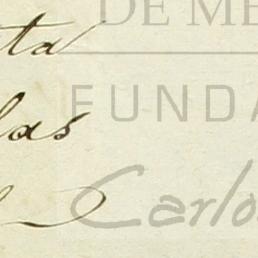 DE ME
ta
FUNDA
las
Carlo